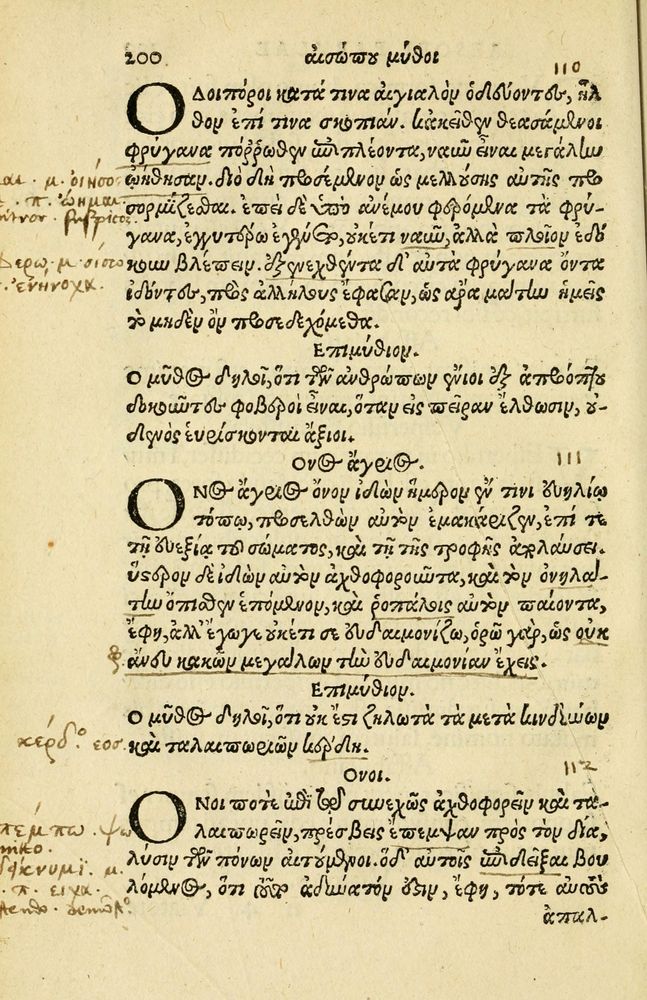 200 αἰσώπου μῦθοι
110
ΟΔοιπόροι κατά τινα αἰγιαλὸν ὁδεύοντες, ἦλ
θον ἐπί τινα σκοπιάν. κἀκεῖθεν θεασάμενοι
φρύγανα πόῤῥωθεν ἐπιπλέοντα, ναῦν εἶναι μεγάλην
ᾠήθησαν. διὸ δὴ προσέμενον ὡς μελλούσης αὐτῆς προ
σορμίζεσθαι. ἐπεὶ δὲ ὑπὸ ἀνέμου φερόμενα τὰ φρύ-
γανα, ἐγγυτέρω ἐγένετο, οὐκέτι ναῦν, ἀλλὰ πλοῖον ἐδό
κουν βλέπειν. ἐξενεχθέντα δ' αὐτὰ φρύγανα ὄντα
ἰδόντες, πρὸς ἀλλήλους ἔφασαν, ὡς ἄρα μάτην ἡμεῖς
τὸ μηδὲν ὂν προσεδεχόμεθα.
Επιμύθιον.
Ο μῦθος δηλοῖ, ὅτι τῶν ἀνθρώπων ἔνιοι ἐξ ἀπρόπτου
δοκοῦντες φοβεροὶ εἶναι, ὅταν εἰς πεῖραν ἔλθωσιν, οὐ-
δενὸς εὑρίσκονται ἄξιοι.
Ονος ἄγριος.
111
ΟΝος ἄγριος ὄνον ἰδὼν ἥμερον ἔν τινι εὐηλίῳ
τόπῳ, προσελθὼν αὐτὸν ἐμακάριζεν, ἐπί τε
τῇ εὐεξίᾳ τοῦ σώματος, καὶ τῇ τῆς τροφῆς ἀπολαύσει.
ὕστερον δὲ ἰδὼν αὐτὸν ἀχθοφοροῦντα, καὶ τὸν ὀνηλά-
την ὄπισθεν ἑπόμενον, καὶ ῥοπάλοις αὐτὸν παίοντα,
ἔφη, ἀλλ' ἔγωγε οὐκέτι σε εὐδαιμονίζω, ὁρῶ γὰρ, ὡς οὐκ
ἄνευ κακῶν μεγάλων τὴν εὐδαιμονίαν ἔχεις.
Επιμύθιον.
Ο μῦθος δηλοῖ, ὅτι οὐκ ἔστι ζηλωτὰ τὰ μετὰ κινδύνων
καὶ ταλαιπωριῶν κέρδη.
Ονοι.
112
ΟΝοι ποτὲ ἐπὶ τῷ συνεχῶς ἀχθοφορεῖν καὶ τα-
λαιπωρεῖν, πρέσβεις ἔπεμψαν πρὸς τὸν δία,
λύσιν τῶν πόνων αἰτούμενοι. ὁ δ' αὐτοῖς ἐπιδεῖξαι βου
λόμενος, ὅτι τοῦτο ἀδύνατόν ἐστιν, ἔφη, τότε αὐτοὺς
ἀπαλ-
κερδ.ο εος.
πεμπω . ψω
. π. ειχα.
. ἐνήνοχα.